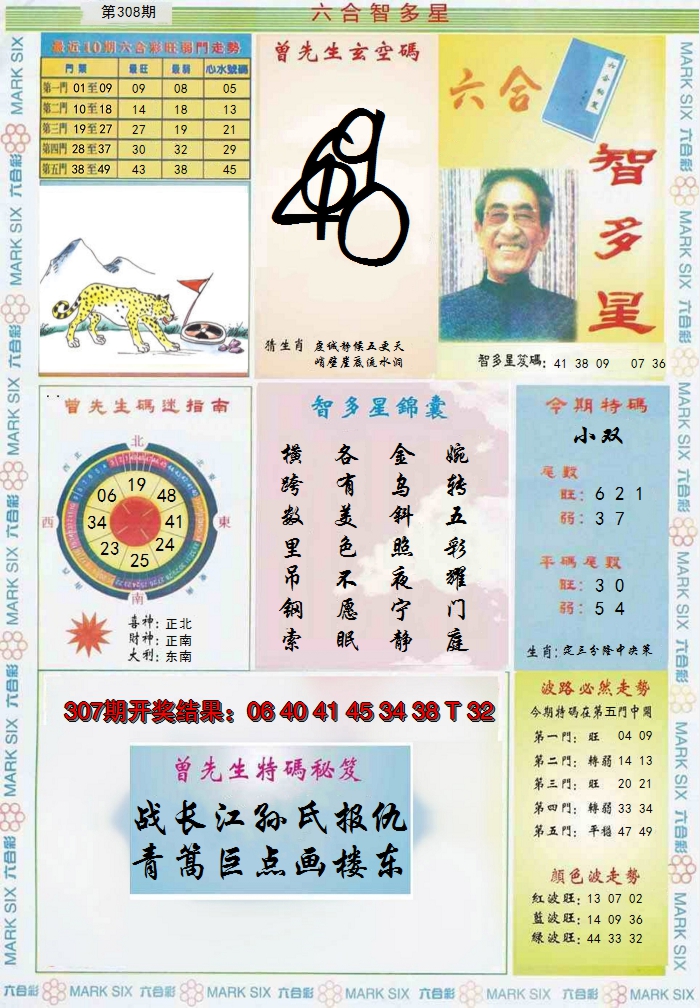 第308期
六合智多星
最近10期六合彩旺弱門走勢
門類 最旺 最弱 心水號碼
第一門 01至09 09 08 05
第二門 10至18 14 18 13
第三門 19至27 27 19 21
第四門 28至37 30 32 29
第五門 38至49 43 38 45
曾先生玄空碼
猜生肖 虔诚静候五更天
峭壁崖底流水洞
六合
智多星
智多星笈碼: 41 38 09 07 36
曾先生碼迷指南
北
西
東
南
19
48
41
24
25
23
34
06
喜神: 正北
财神: 正南
大利: 东南
智多星錦囊
婉转五彩耀门庭
金乌斜照夜宁静
各有美色不愿眠
横跨数里吊钢索
今期特碼
小双
尾數
旺: 6 2 1
弱: 3 7
平碼尾數
旺: 3 0
弱: 5 4
生肖: 定三分隆中决策
307期开奖结果: 06 40 41 45 34 38 T 32
曾先生特碼秘笈
战长江孙氏报仇
青篙巨点画楼东
波路必然走勢
今期特碼在第五門中開
第一門: 旺 04 09
第二門: 轉弱 14 13
第三門: 旺 20 21
第四門: 轉弱 33 34
第五門: 平穩 47 49
顔色波走勢
紅波旺: 13 07 02
藍波旺: 14 09 36
绿波旺: 44 33 32
MARK SIX 六合彩